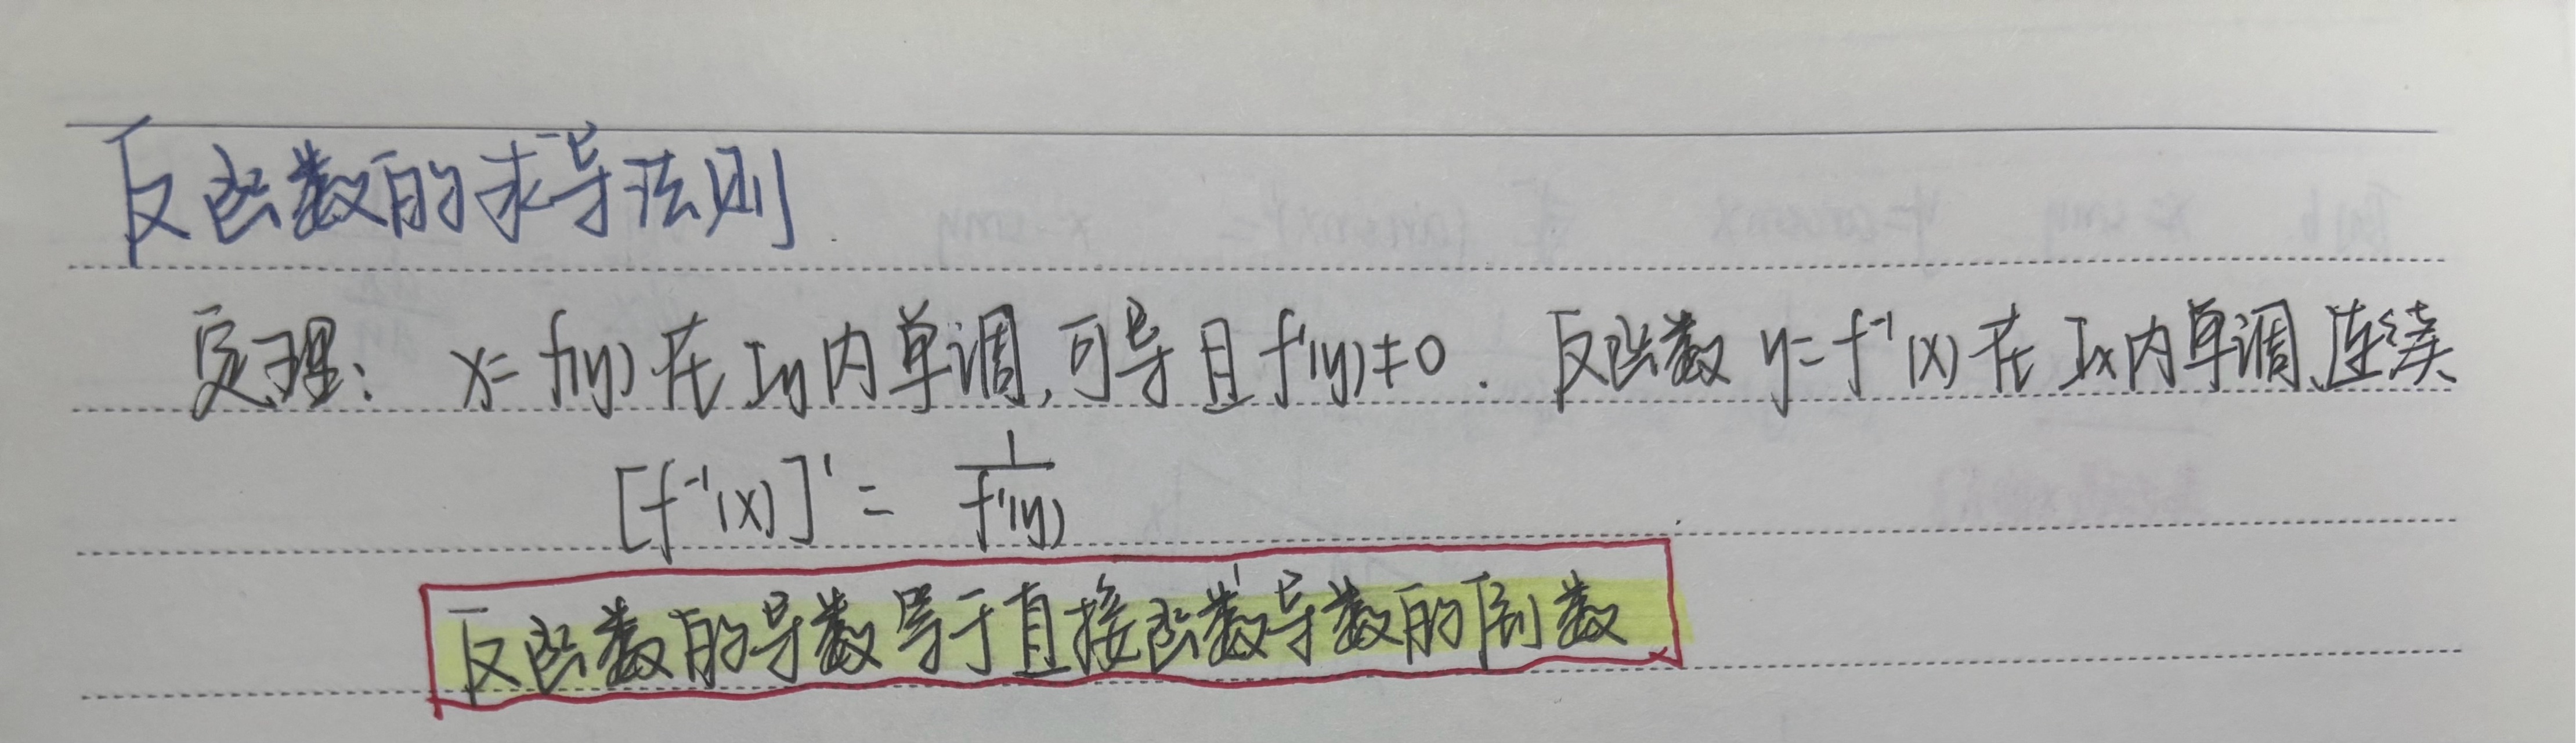 反函数的求导法则.
定理: x=f(y)在Iy内单调,可导且f'(y)≠0. 反函数 y=f⁻¹(x)在Ix内单调、连续
[f⁻¹(x)]' = 1/f'(y)
反函数的导数等于直接函数导数的倒数